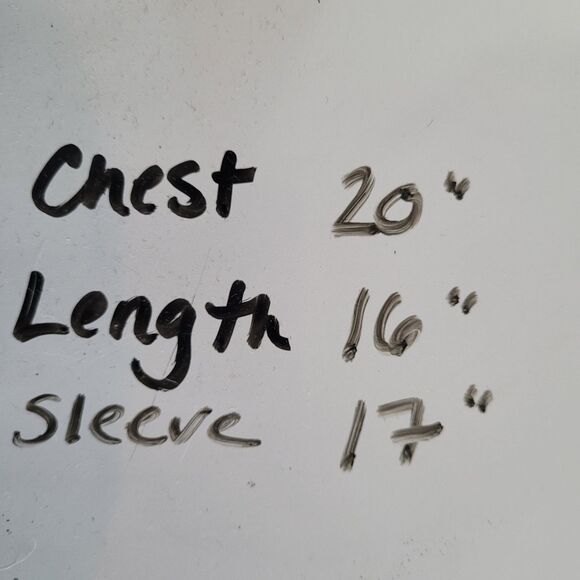 Chest 20"
Length 16"
Sleeve 17"